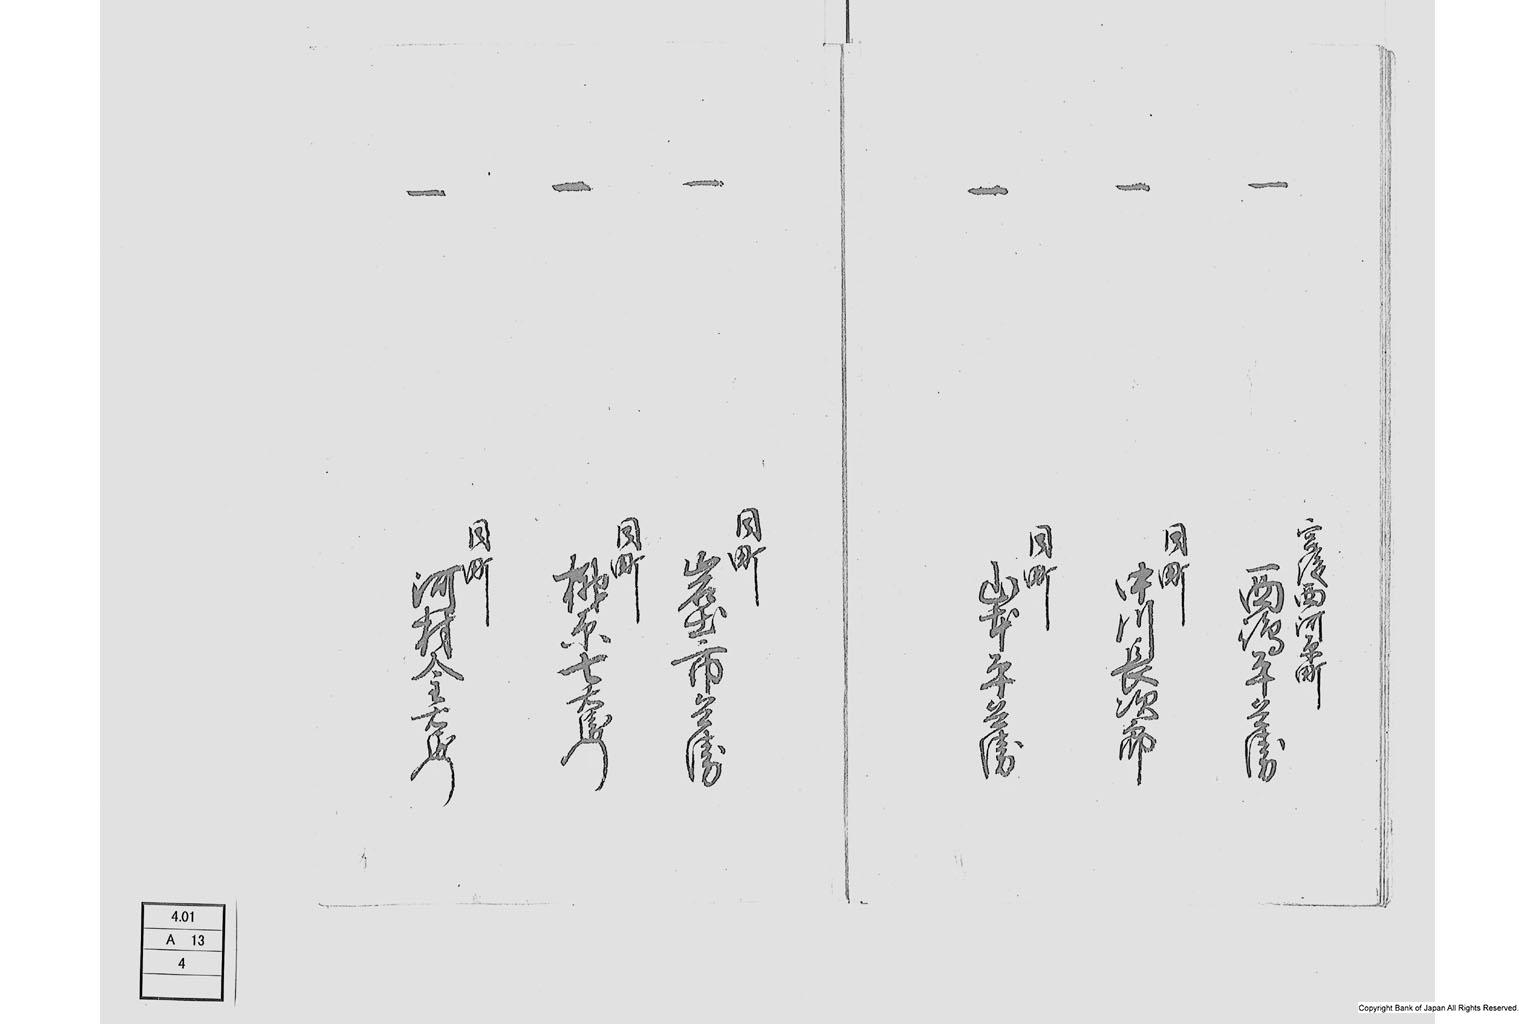 一
宮後西河原町
西嶋平兵衛
一
同町
中川長次郎
一
同町
山本平兵衛
一
同町
岩出市兵衛
一
同町
榊原七右衛門
一
同町
河村金右衛門
4.01
A 13
4
Copyright Bank of Japan All Rights Reserved.